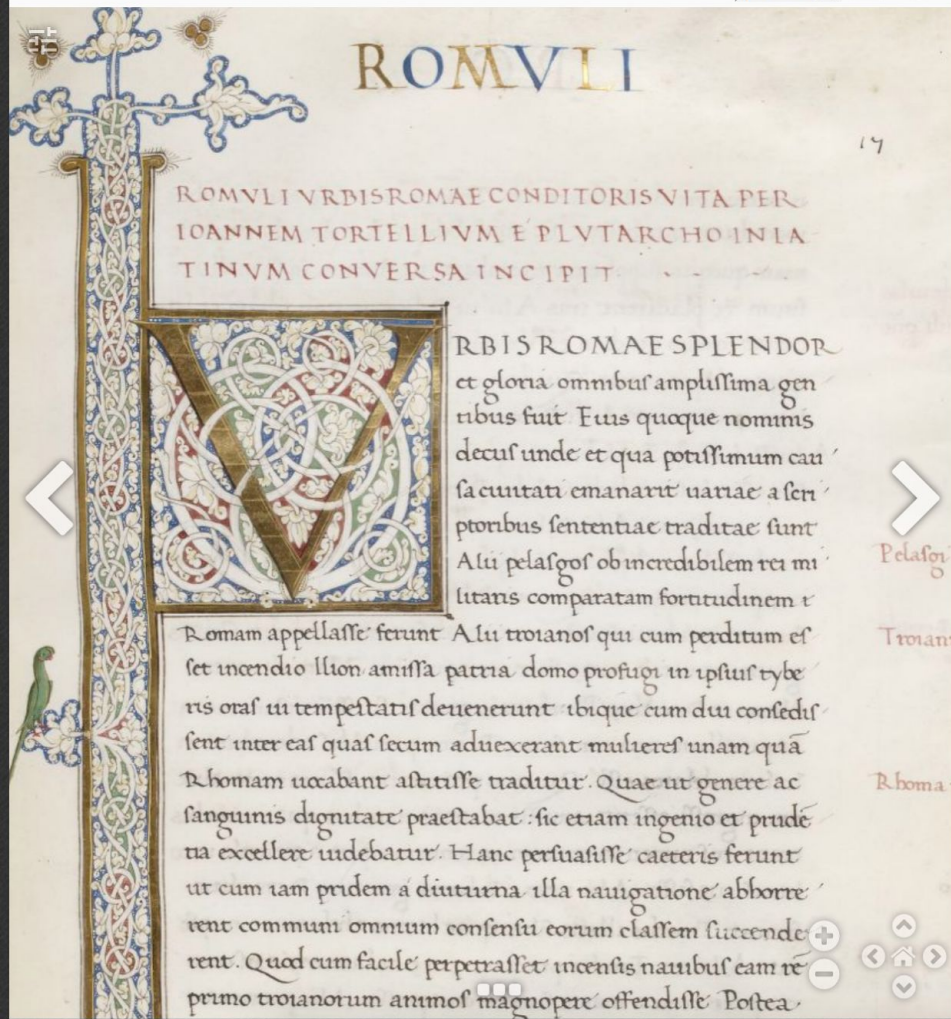 ROMVLI
17
ROMVLI VRBIS ROMAE CONDITORIS VITA PER
IOANNEM TORTELLIVM E PLVTARCHO IN LA
TINVM CONVERSA INCIPIT
VRBIS ROMAE SPLENDOR
et gloria omnibuſ ampliſſima gen
tibus fuit Eius quoque nominis
decuſ unde et qua potiſſimum cau
ſa ciuitati emanarit uariae a ſcri
ptoribus ſententiae traditae ſunt
Alii pelaſgoſ ob incredibilem rei mi
litaris comparatam fortitudinem
Romam appellaſſe ferunt Alii troianoſ qui cum perditum eſ
ſet incendio Ilion amiſſa patria domo profugi in ipſiuſ tybe
ris oraſ ui tempeſtatiſ deuenerunt ibique cum diu conſediſ
ſent inter eaſ quaſ ſecum aduexerant muliereſ unam quā
Rhomam uocabant aſtitiſſe traditur. Quae ut genere ac
ſanguinis dignitate praeſtabat : ſic etiam ingenio et prudē
tia excellere uidebatur. Hanc perſuaſiſſe caeteris ferunt
ut cum iam pridem a diuturna illa nauigatione abhorre
rent communi omnium conſenſu eorum claſſem ſuccende
rent. Quod cum facile perpetraſſet incenſis nauibuſ eam rē
primo troianorum animos magnopere offendiſſe Poſtea
Pelaſgi
Troian
Rhoma